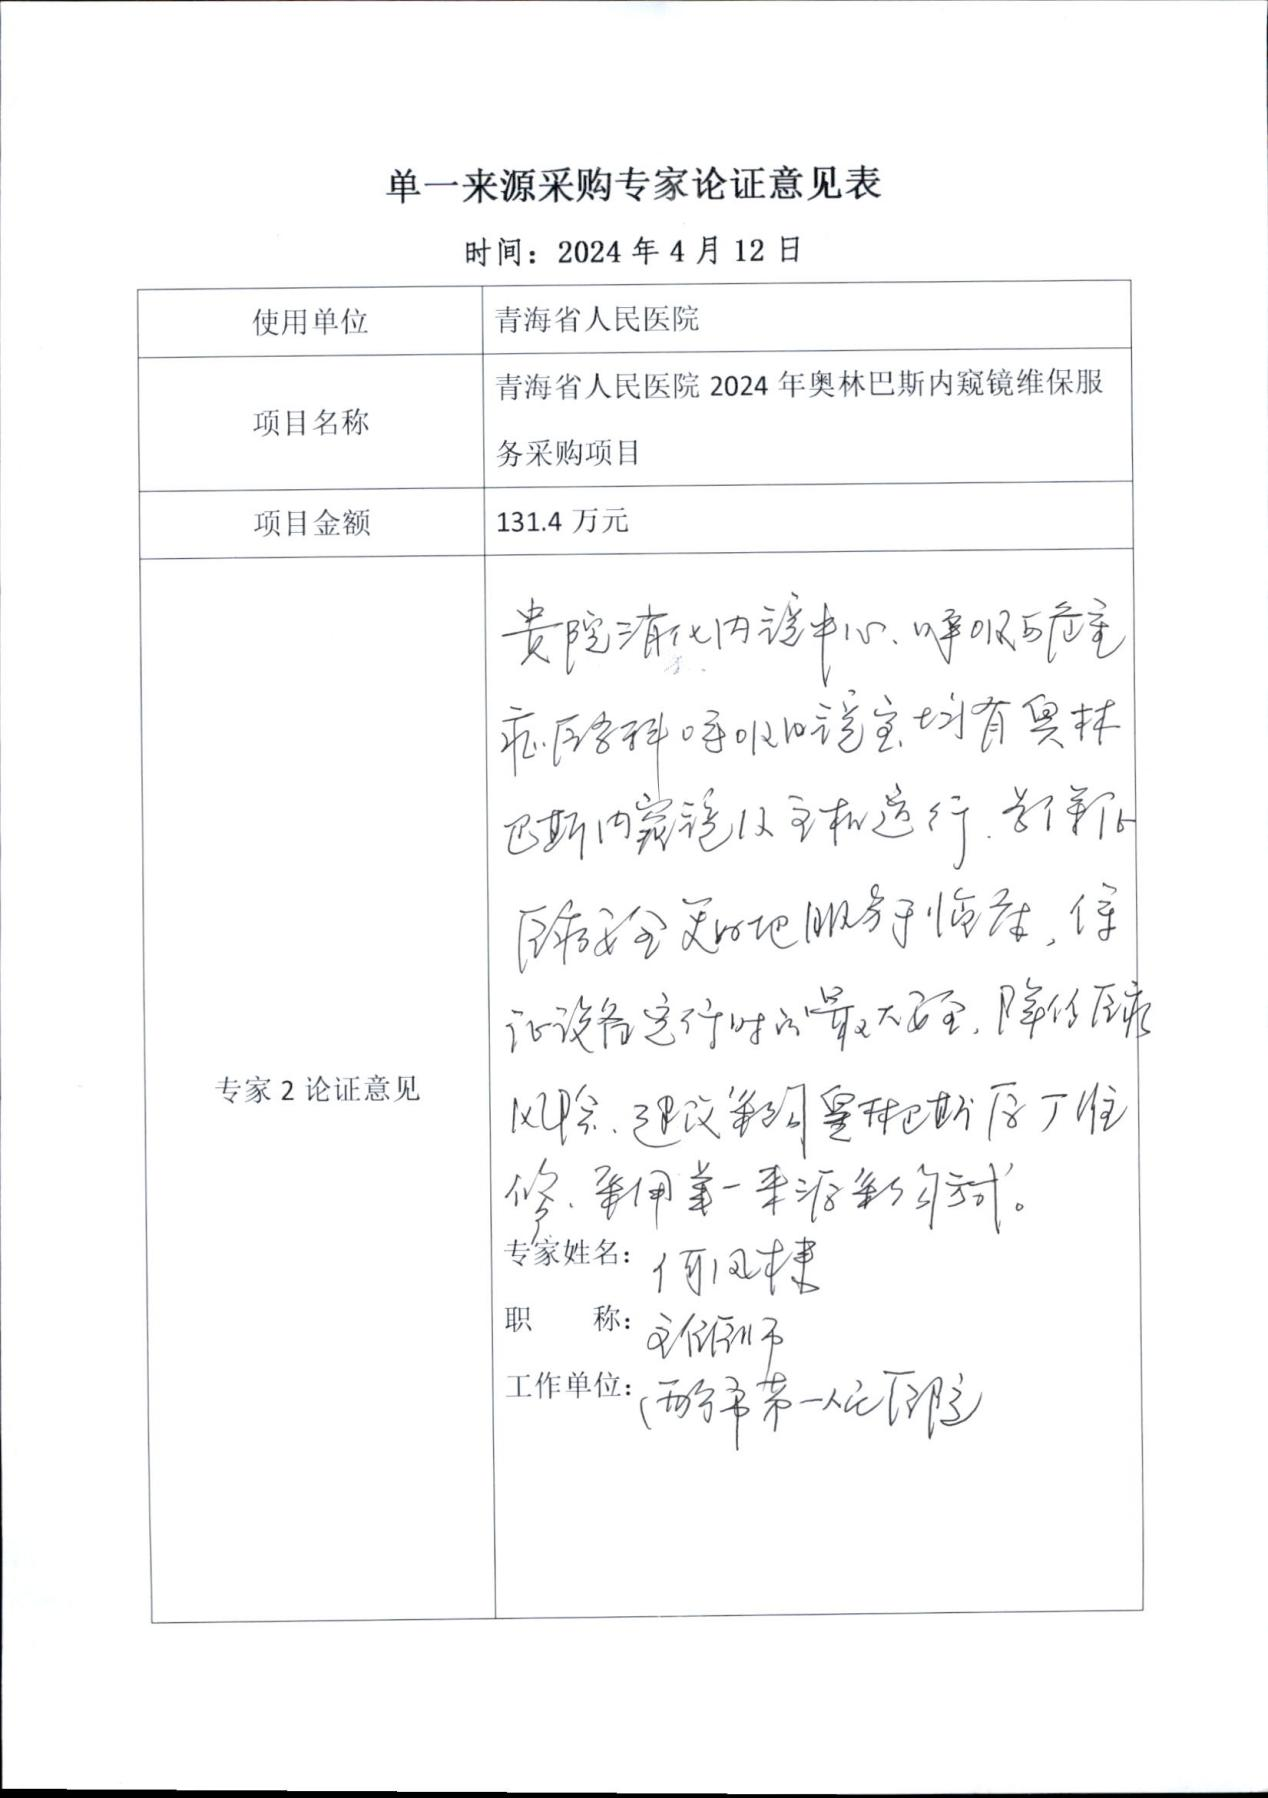 单一来源采购专家论证意见表
时间：2024 年 4 月 12 日
使用单位
青海省人民医院
项目名称
青海省人民医院 2024 年奥林巴斯内窥镜维保服
务采购项目
项目金额
131.4 万元
专家 2 论证意见
贵院消化内镜中心、呼吸与危重
症医学科呼吸内镜室均有奥林
巴斯内窥镜及主机运行.为保证
医疗安全更好地服务于临床，保
证设备运行时的最大安全，降低医疗
风险、建议采购奥林巴斯原厂维
修、采用单一来源采购方式。
专家姓名：何凤棣
职 称：主任医师
工作单位：西宁市第一人民医院